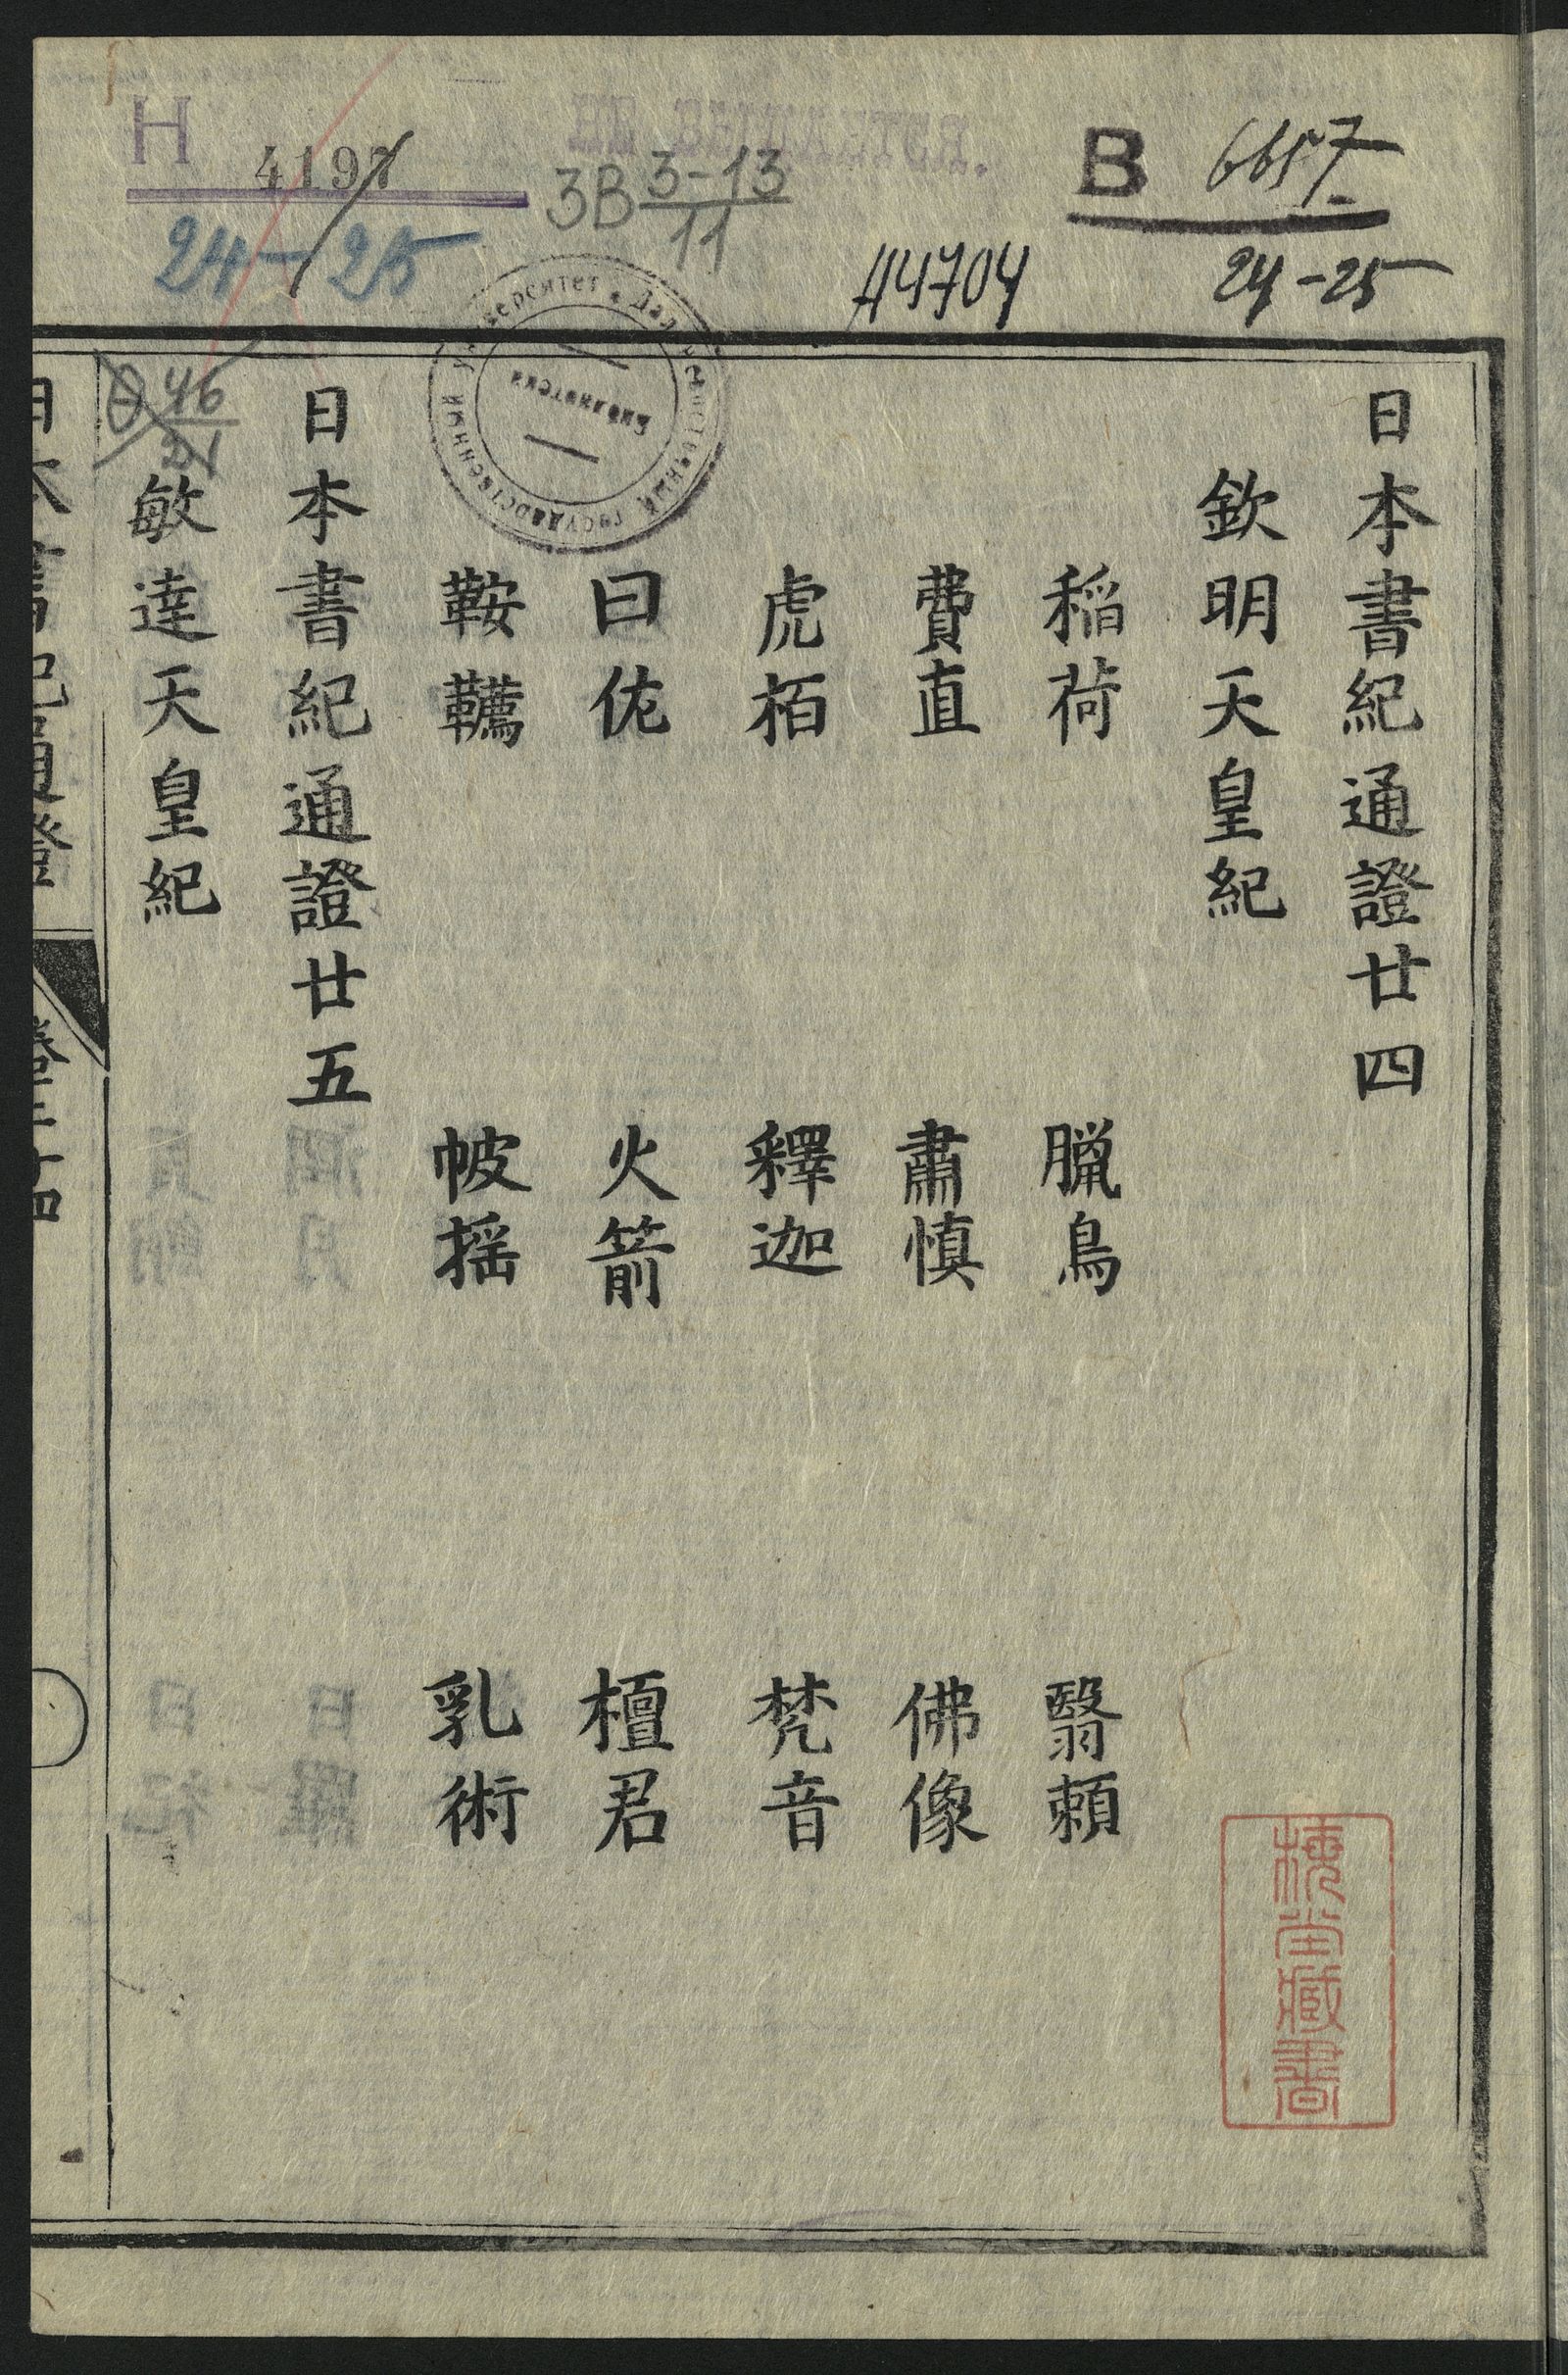 Н 4197
24-25
НЕ ВЫДАЕТСЯ.
3В 3-13
11
44704
В 6657
24-25
46
21
Дальневосточный государственный университет
Библиотека
日本書紀通證廿四
欽明天皇紀
稲荷 臘鳥 翳賴
費直 肅慎 佛像
虎栢 釋迦 梵音
曰佐 火箭 檀君
鞍韉 帔揺 乳術
日本書紀通證廿五
敏達天皇紀
日本書紀通證 卷二十四
藏書